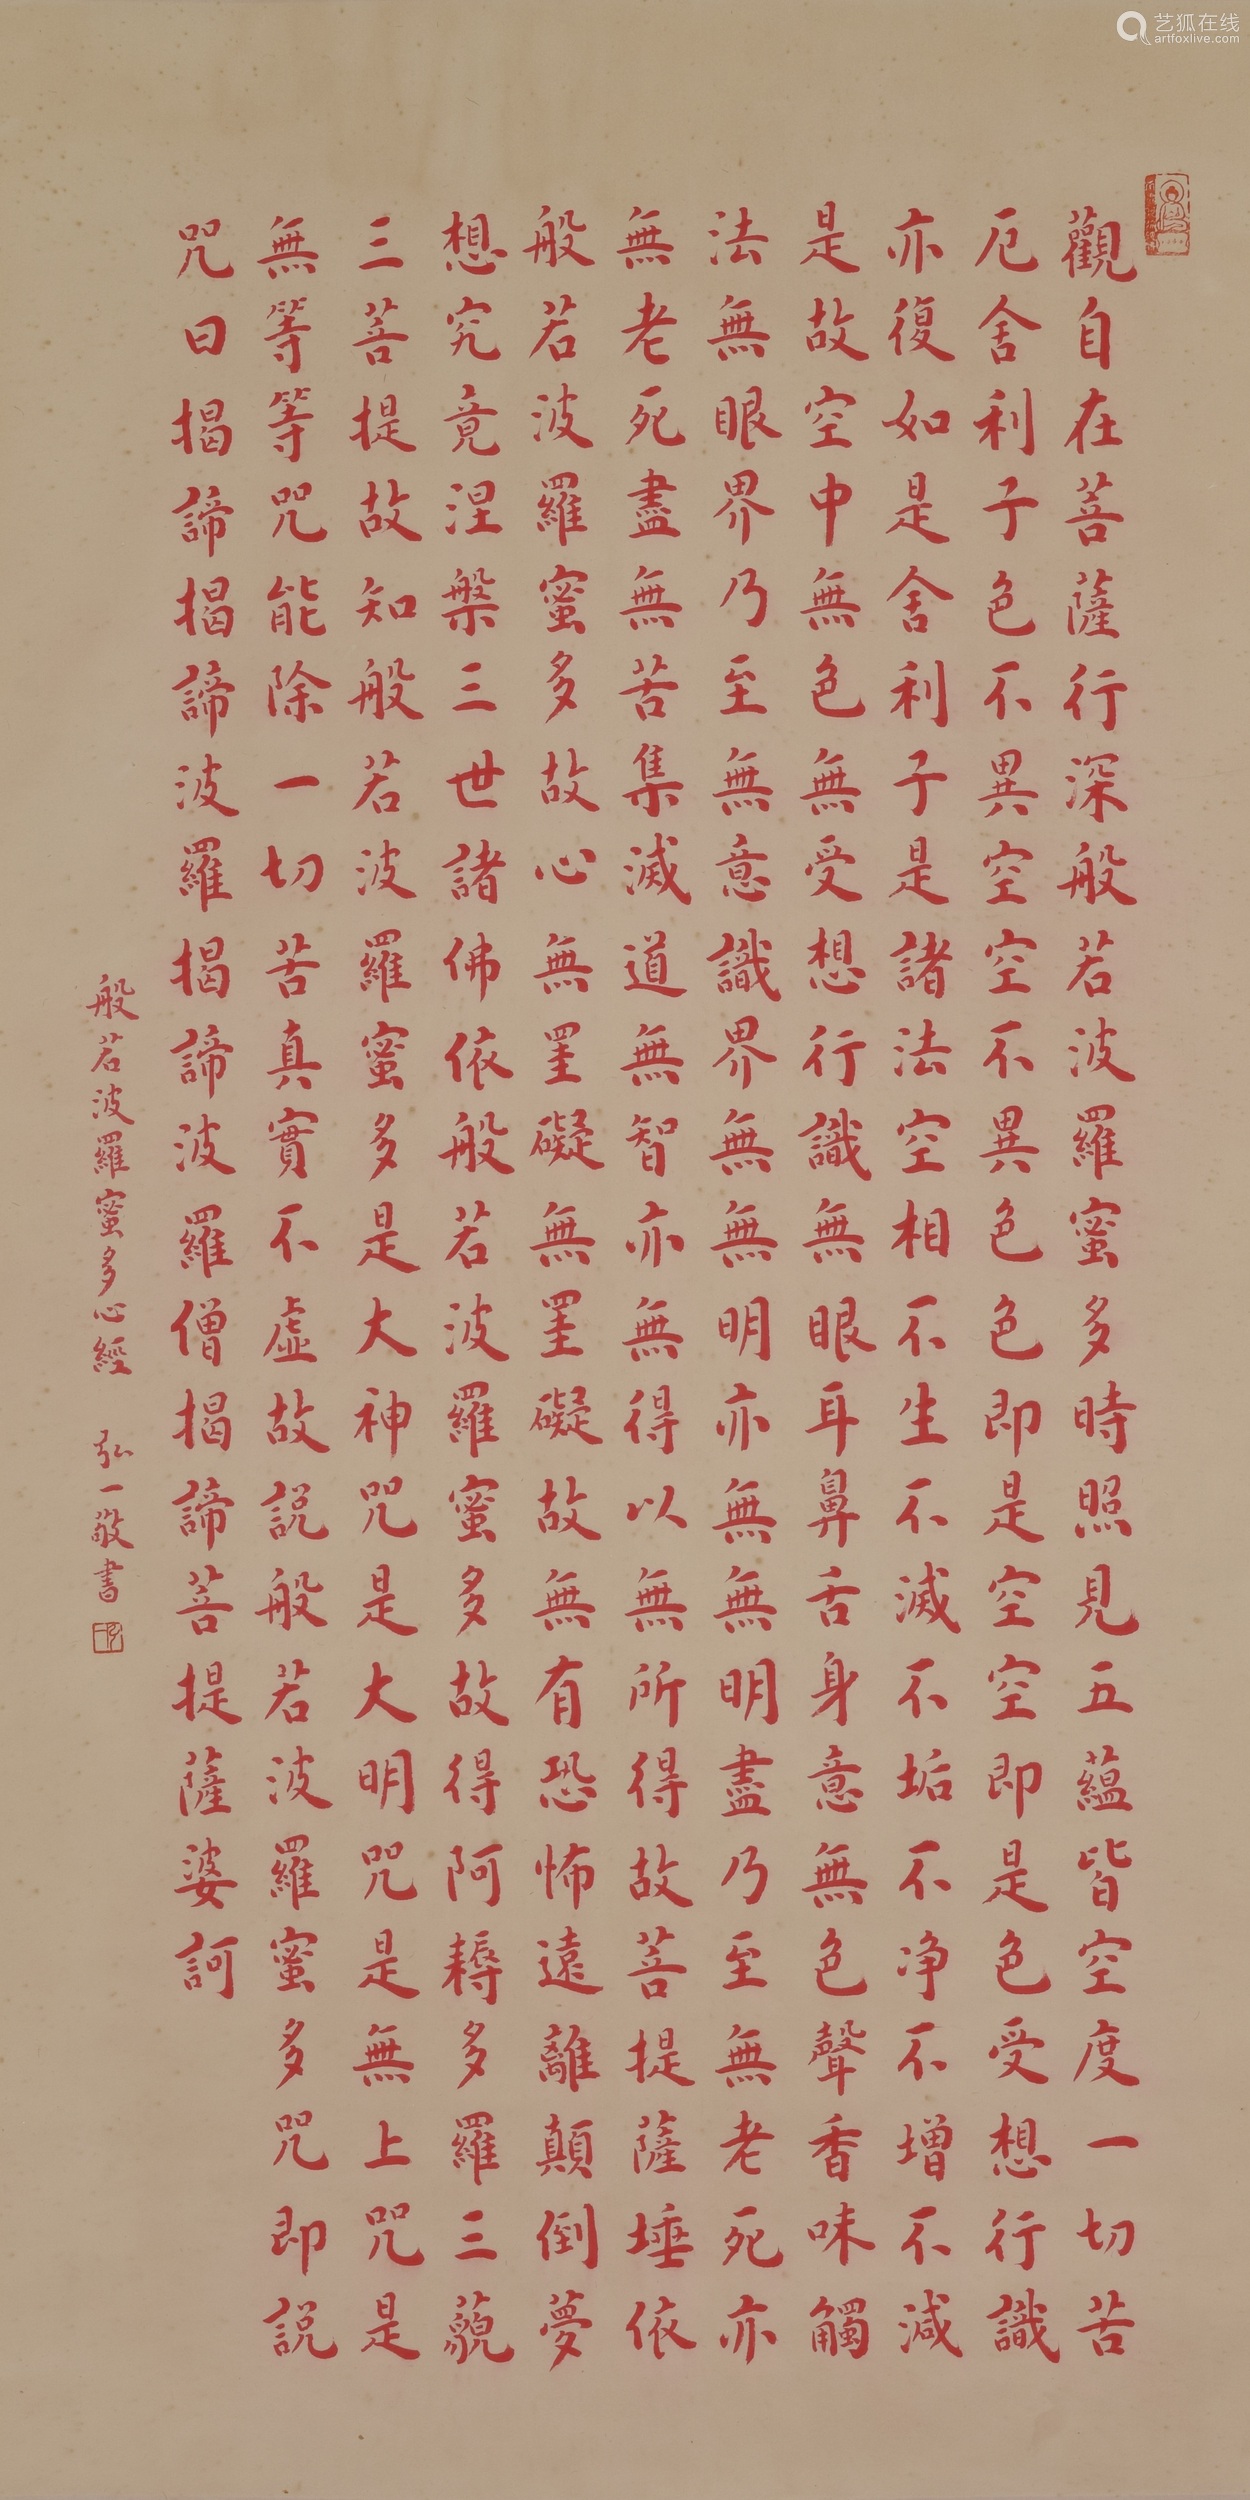 艺狐在线
artfoxlive.com
觀自在菩薩行深般若波羅蜜多時照見五蘊皆空度一切苦
厄舍利子色不異空空不異色色即是空空即是色受想行識
亦復如是舍利子是諸法空相不生不滅不垢不净不增不減
是故空中無色無受想行識無眼耳鼻舌身意無色聲香味觸
法無眼界乃至無意識界無無明亦無無明盡乃至無老死亦
無老死盡無苦集滅道無智亦無得以無所得故菩提薩埵依
般若波羅蜜多故心無罣礙無罣礙故無有恐怖遠離顛倒夢
想究竟涅槃三世諸佛依般若波羅蜜多故得阿耨多羅三藐
三菩提故知般若波羅蜜多是大神咒是大明咒是無上咒是
無等等咒能除一切苦真實不虛故說般若波羅蜜多咒即說
咒曰揭諦揭諦波羅揭諦波羅僧揭諦菩提薩婆訶
般若波羅蜜多心經 弘一敬書